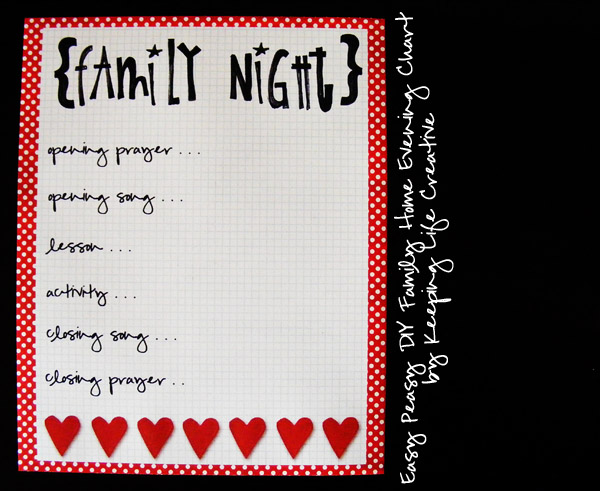 {fAmiLY NiGHt}
opening prayer . . .
opening song . . .
lesson . . .
activity . . .
closing song . . .
closing prayer . .
Easy Peasy DIY Family Home Evening Chart
by Keeping Life Creative